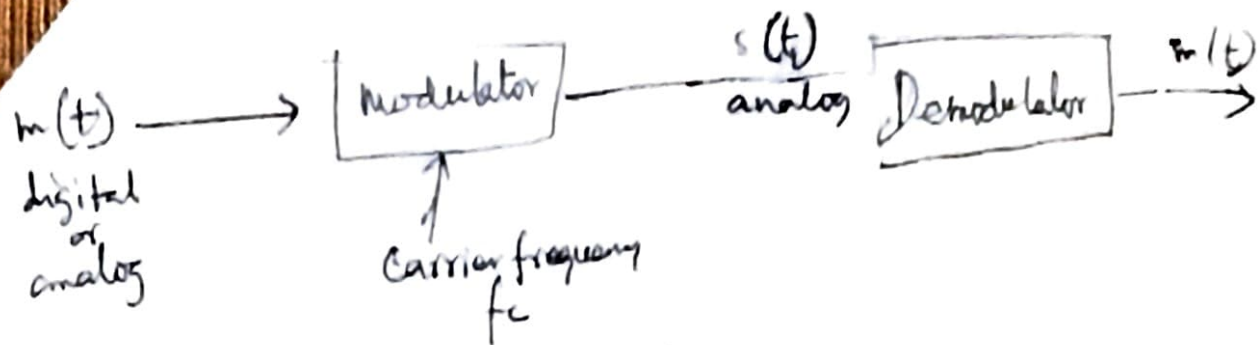 m(t)
digital
or
analog
Modulator
Carrier frequency
fc
s(t)
analog
Demodulator
m(t)